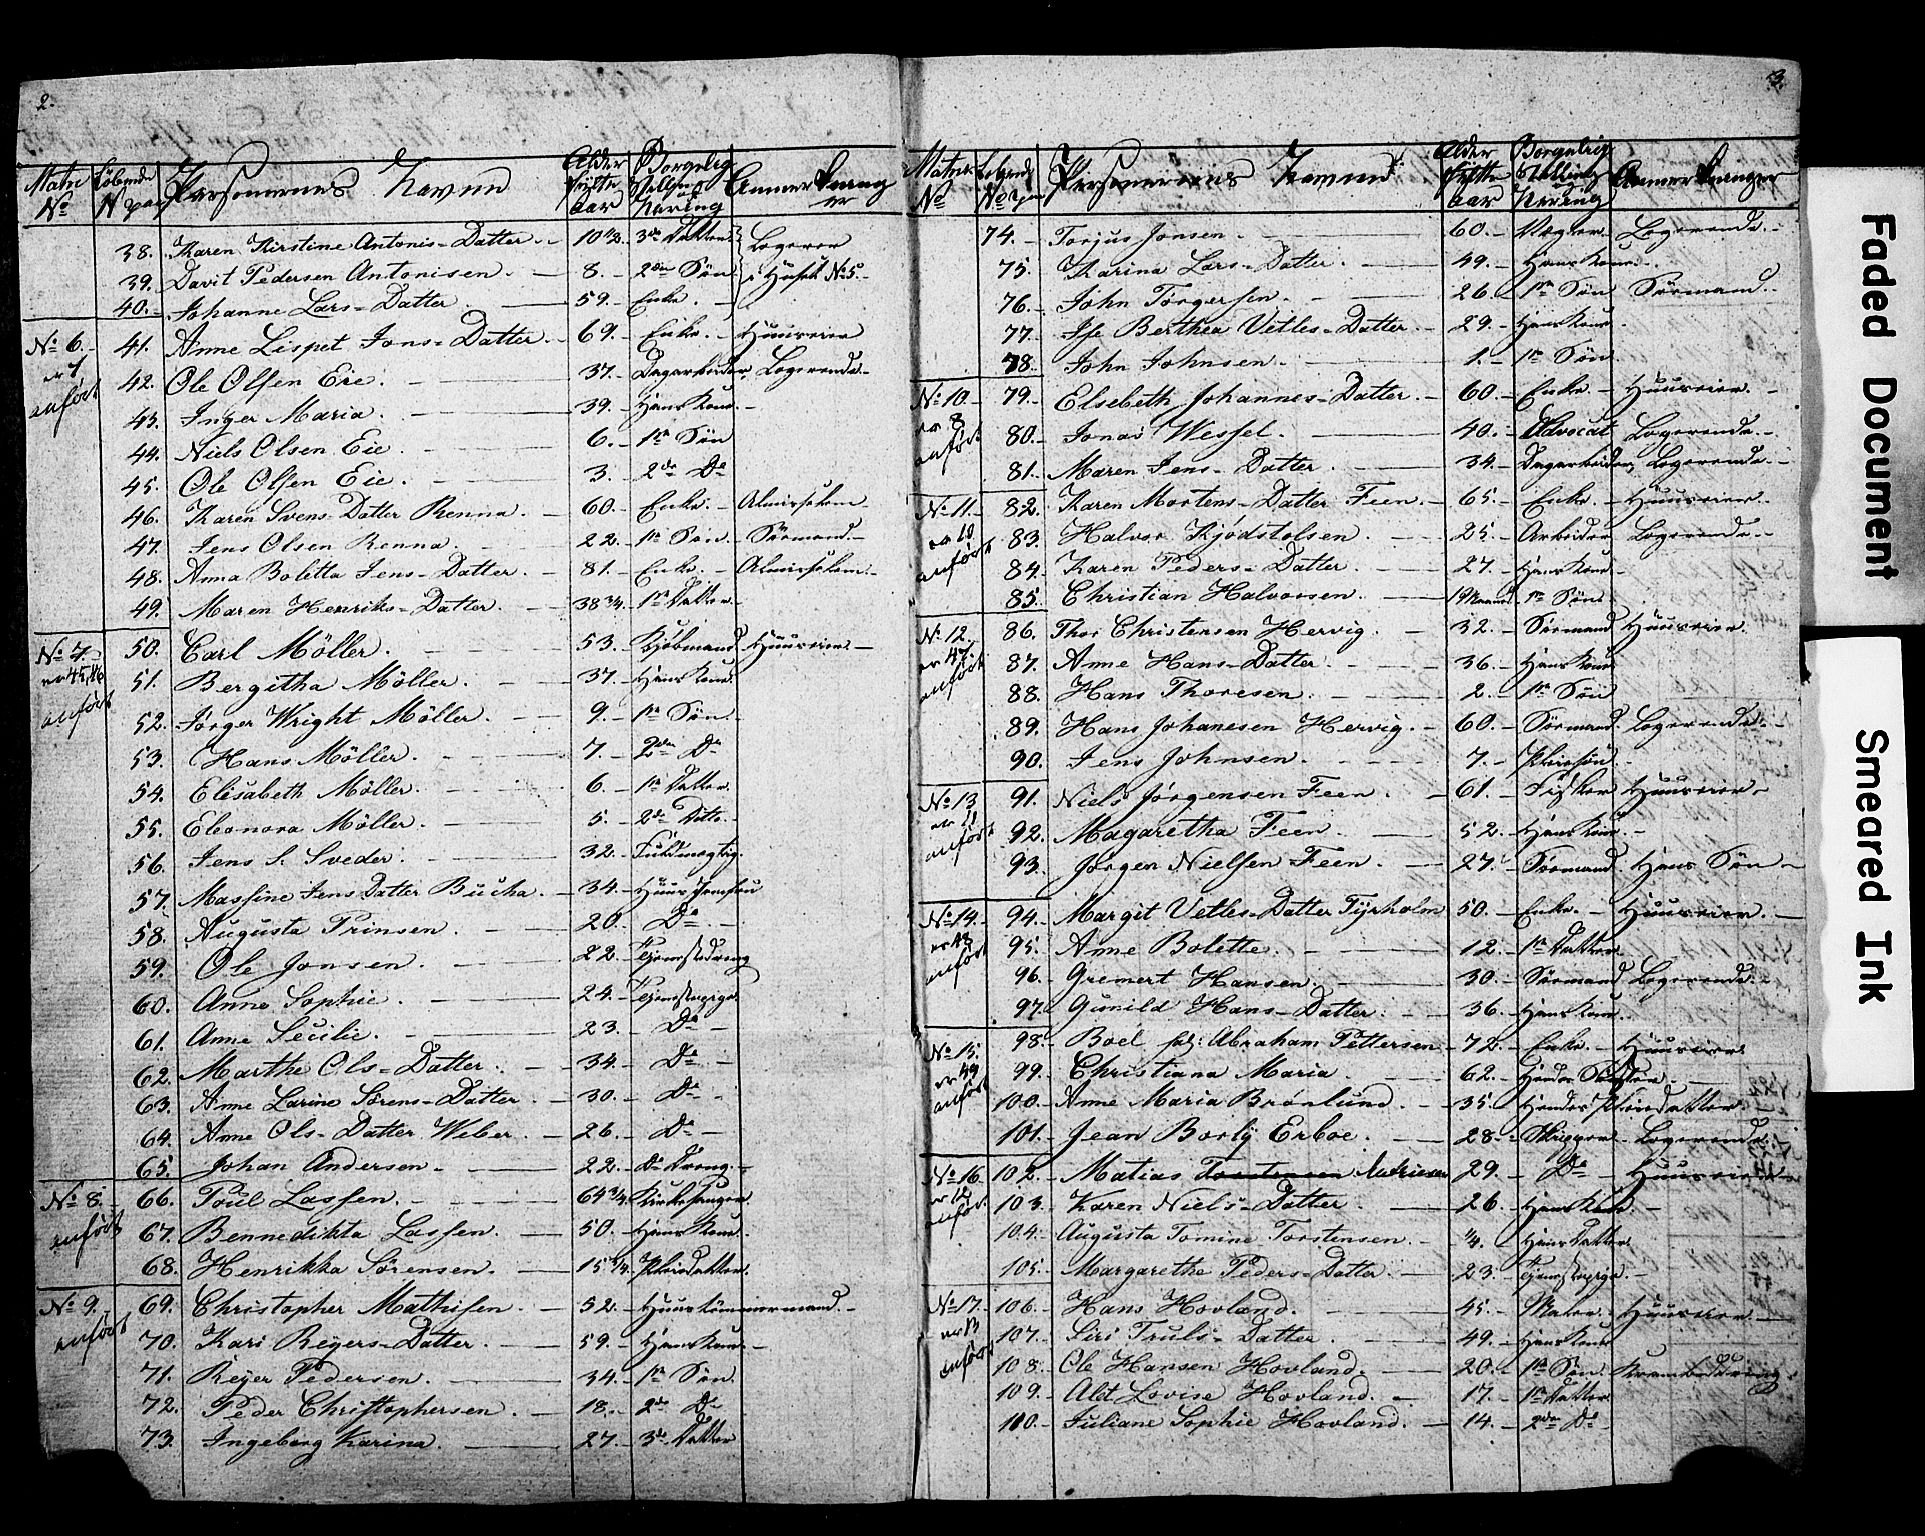 2.
Matr No | Löbende No | Personernes Navne | Alder fyldte aar | Borgerlig Stilling Næring | Anmerkninger
38. Karen Kirstine Antonis-Datter. 10 1/2. 3de Datter Logerer
39. Davit Pedersen Antonisen. 8. 2den Søn i Huset No 5.
40. Johanne Lars-Datter. 59. Enke.
No 6. 41. Anne Lispet Jons-Datter. 69. Enke. Huuseier
er 7 anført
42. Ole Olsen Eie. 37. Dagarbeider, Logerende
43. Inger Maria. 39. Hans Kone.
44. Niels Olsen Eie 6. 1ste Søn
45. Ole Olsen Eie. 3. 2de Do
46. Karen Svens Datter Renna. 60. Enke. Almisselem
47. Jens Olsen Renna. 22. 1ste Søn. Sörmand.
48. Anna Boletta Jens-Datter. 81. Enke. Almisselem
49. Maren Henriks-Datter. 38 3/4. 1ste Datter
No 7. 50. Carl Möller. 53. Kjöbmand Huuseier
er 45, 46 anført
51. Bergitha Möller. 37. Hans Kone.
52. Jørger Wright Möller. 9. 1ste Søn.
53. Hans Möller. 7. 2den Do
54. Elisabeth Möller. 6. 1ste Datter
55. Eleonora Möller. 5. 2de Ditto.
56. Jens S. Sveder. 32. Fuldmægtig.
57. Massine Jens Datter Bucha. 34. Huus Jomfru
58. Augusta Prinsen. 20. Do
59. Ole Jonsen 22. Tjenestedreng
60. Anne Sophie. 24. Tjenestepige
61. Anne Secilie. 23. Do
62. Marthe Ols-Datter. 34. Do
63. Anne Larine Sörens-Datter. 30. Do
64. Anne Ols-Datter Weber. 26. Do
65. Johan Andersen. 22. Do Dreng.
No 8. 66. Poul Lassen. 64 3/4. Kirkesanger
anført
67. Bennedikta Lassen. 50. Hans Kone.
68. Henrikka Sörensen. 15 3/4. Pleiedatter
No 9. 69. Christopher Mathisen. 52. Huustömmermand.
anført
70. Kari Reyers-Datter. 59. Hans Kone.
71. Reyer Pedersen. 34. 1ste Søn.
72. Peder Christophersen. 18. 2de Do
73. Ingeborg Karina. 27. 3de Datter
3.
Matrk No | Løbende No | Personernes Navne | Alder fyldte aar | Borgerlig Stilling Næring | Anmerkninger
74. Torjus Jonsen. 60. Vægter Logerende.
75. Karina Lars-Datter. 49. Hans Kone.
76. John Torgersen. 26. 1ste Søn Sörmand.
77. Ise Berthea Vetles-Datter. 29. Hans Kone
78. John Johnsen. 1. 1ste Søn
No 10. 79. Elsebeth Johannes-Datter. 60. Enke. Huuseier.
er 8 anført
80. Jonas Wessel. 40. Advocat Logerende.
81. Maren Jens-Datter. 34. Dagarbeider, Logerende.
No 11. 82. Karen Mortens-Datter Feen. 65. Enke. Huuseier.
er 10 anført
83. Halvor Kjødstolsen. 25. Arbeider Logerende.
84. Karen Peders-Datter. 27. Hans Kone
85. Christian Halvorsen. 1ste Søn.
No 12. 86. Thor Christensen Hervig. 32. Sörmand Huuseier.
er 47 anført
87. Anne Hans-Datter. 36. Hans Kone
88. Hans Thoresen. 2. 1ste Søn
89. Hans Johanesen Hervig. 60. Sörmand. Logerende.
90. Jens Johnsen. 7. Pleiesøn.
No 13. 91. Niels Jörgensen Feen. 61. Fisker Huuseier.
er 11 anført
92. Magaretha Feen. 52. Hans Kone.
93. Jørgen Nielsen Feen. 27. Sörmand. Hans Søn
No 14. 94. Margit Vetles-Datter Tyrholm 50. Enke. Huuseier.
er 48 anført
95. Anne Bolette. 12. 1ste Datter
96. Gremert Hansen. 30. Sörmand Logerende.
97. Gunild Hans-Datter. 36. Hans Kone.
No 15. 98. Boel sal: Abraham Pettersen. 72. Enke. Huuseier
er 49 anført
99. Christiana Maria. 62. Hendes Søster.
100. Anne Maria Brønlund. 35. Hendes Pleiedatter
101. Jean Borly Erboe. 28. Skipper Logerende.
No 16. 102. Matias 29. Do Huuseier
er 12 anført.
103. Karen Niels-Datter. 26. Hans Kone
104. Augusta Tomine Torstensen. 1/4. Hans Datter
105. Margarethe Peders-Datter. 23. Tjenestepige.
No 17. 106. Hans Hovland. 45. Maler. Huuseier
er 13 anført
107. Siri Truls-Datter. 49. Hans Kone
108. Ole Hansen Hovland. 20. 1ste Søn.
109. Alt Lovise Hovland. 17. 1ste Datter
110. Juliane Sophie Hovland. 14. 2den Do
Faded Document
Smeared Ink